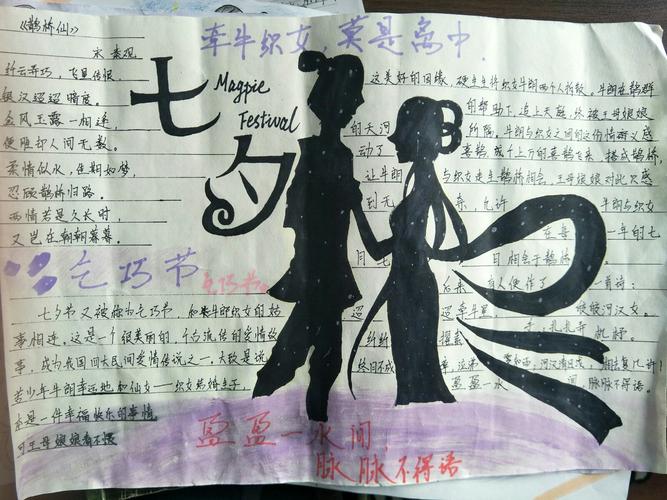 《鹊桥仙》
牵牛织女,莫是离中.
纤云弄巧,飞星传恨,
银汉迢迢暗度。
金风玉露一相逢,
便胜却人间无数。
柔情似水,佳期如梦,
忍顾鹊桥归路。
两情若是久长时,
又岂在朝朝暮暮。
七夕
Magpie
Festival
乞巧节
乞巧节。
七夕节又被称为乞巧节,和牛郎织女的故
事相连。这是一个很美丽的,千古流传的爱情故
事,成为我国四大民间爱情传说之一。大致是说
若少年牛郎幸运地和仙女——织女结
本是一件幸福快乐的事情
可王母娘娘看不惯
这美好的因缘,硬生生将织女牛郎两个人拆散。牛郎在鹊群
的帮助下,追上天庭,终被王母娘娘
的天河所隔。牛郎与织女之间的这份情而义感
动了喜鹊,成千上万的喜鹊飞来,搭成鹊桥,
让牛郎与织女走上鹊桥相会,王母娘娘对此又感
到无奈,允许牛郎与织女
在每一年的七
月七日相会于鹊桥
后来,有人便作了一首诗:
迢迢牵牛星,皎皎河汉女。
纤纤擢素手,札札弄机杼。
终日不成章,泣涕零如雨,河汉清且浅,相去复几许!
盈盈一水间,脉脉不得语。
盈盈一水间,
脉脉不得语